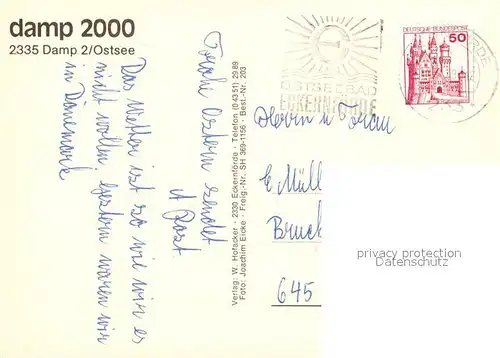 damp 2000
2335 Damp 2/Ostsee
Das Wetter ist so wie wir es
nicht wollen. Gestern waren wir
in Dänemark
Frohe Ostern sendet
A. Post
Verlag: W. Hofacker · 2330 Eckernförde · Telefon (04351) 2989
Foto: Joachim Eicke · Freig.-Nr. SH 369-1156 · Best.-Nr. 203
OSTSEEBAD
ECKERNFÖRDE
DEUTSCHE BUNDESPOST
50
Herrn u. Frau
E. Müll
Bruck
645
privacy protection
Datenschutz